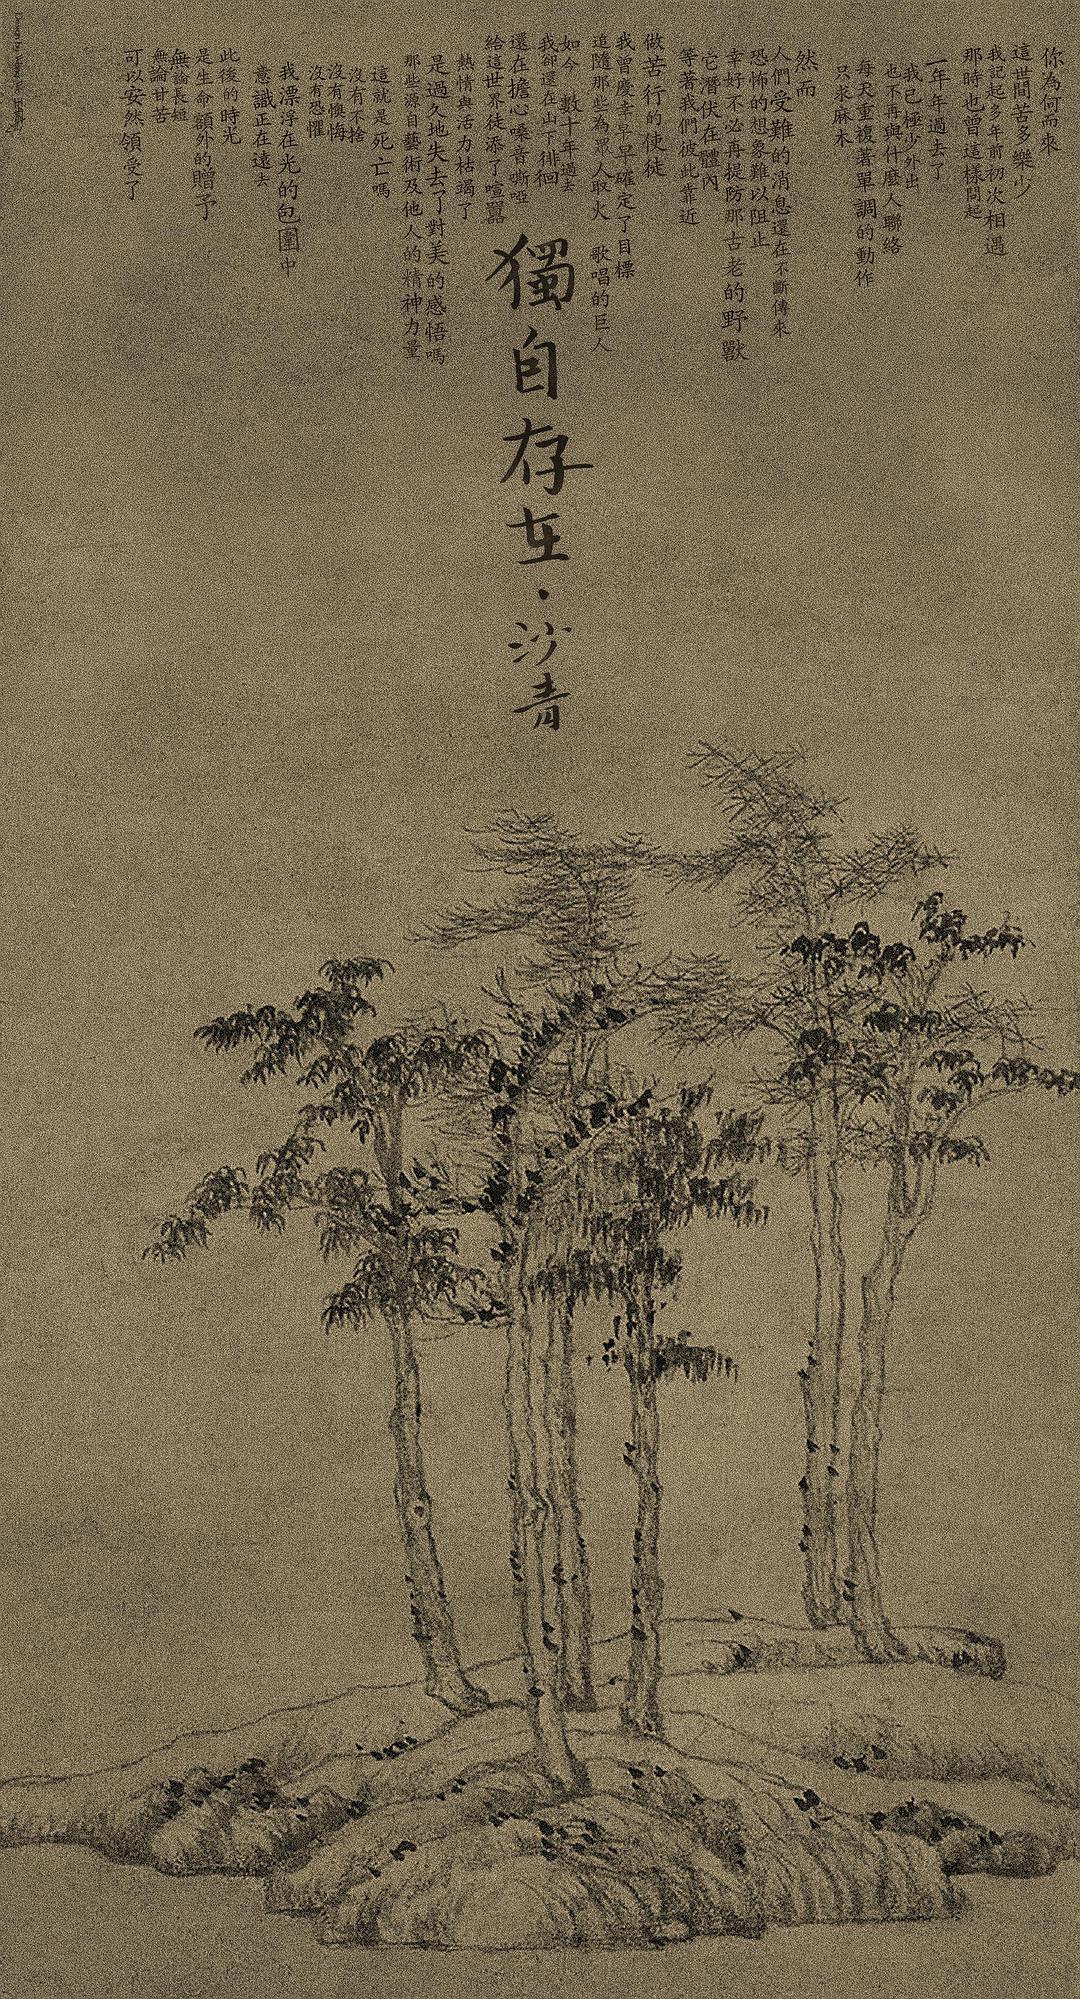 你為何而來
這世間苦多樂少
我記起多年前初次相遇
那時也曾這樣問起
一年年過去了
我已極少外出
也不再與什麼人聯絡
每天重複著單調的動作
只求麻木
然而
人們受難的消息還在不斷傳來
恐怖的想象難以阻止
幸好不必再提防那古老的野獸
它潛伏在體內
等著我們彼此靠近
做苦行的使徒
我曾慶幸早早確定了目標
追隨那些為眾人取火 歌唱的巨人
如今 數十年過去
我卻還在山下徘徊
還在擔心嗓音嘶啞
給這世界徒添了喧囂
熱情與活力枯竭了
是過久地失去了對美的感悟嗎
那些源自藝術及他人的精神力量
這就是死亡嗎
沒有不捨
沒有懊悔
沒有恐懼
我漂浮在光的包圍中
意識正在遠去
此後的時光
是生命額外的贈予
無論長短
無論甘苦
可以安然領受了
獨自存在·沙青